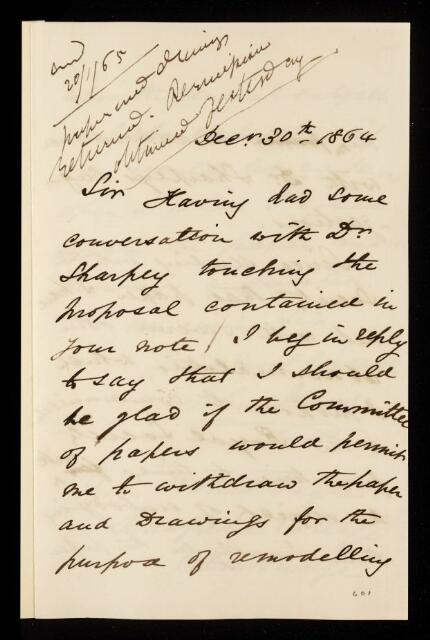 and
20/1/65
paper and drawings
returned. Permission
obtained yesterday
Decr. 30th 1864
Sir Having had some
conversation with Dr.
Sharpey touching the
proposal contained in
your note / I beg in reply
to say that I should
be glad if the Committee
of papers would permit
me to withdraw the paper
and Drawings for the
purpose of remodelling
601